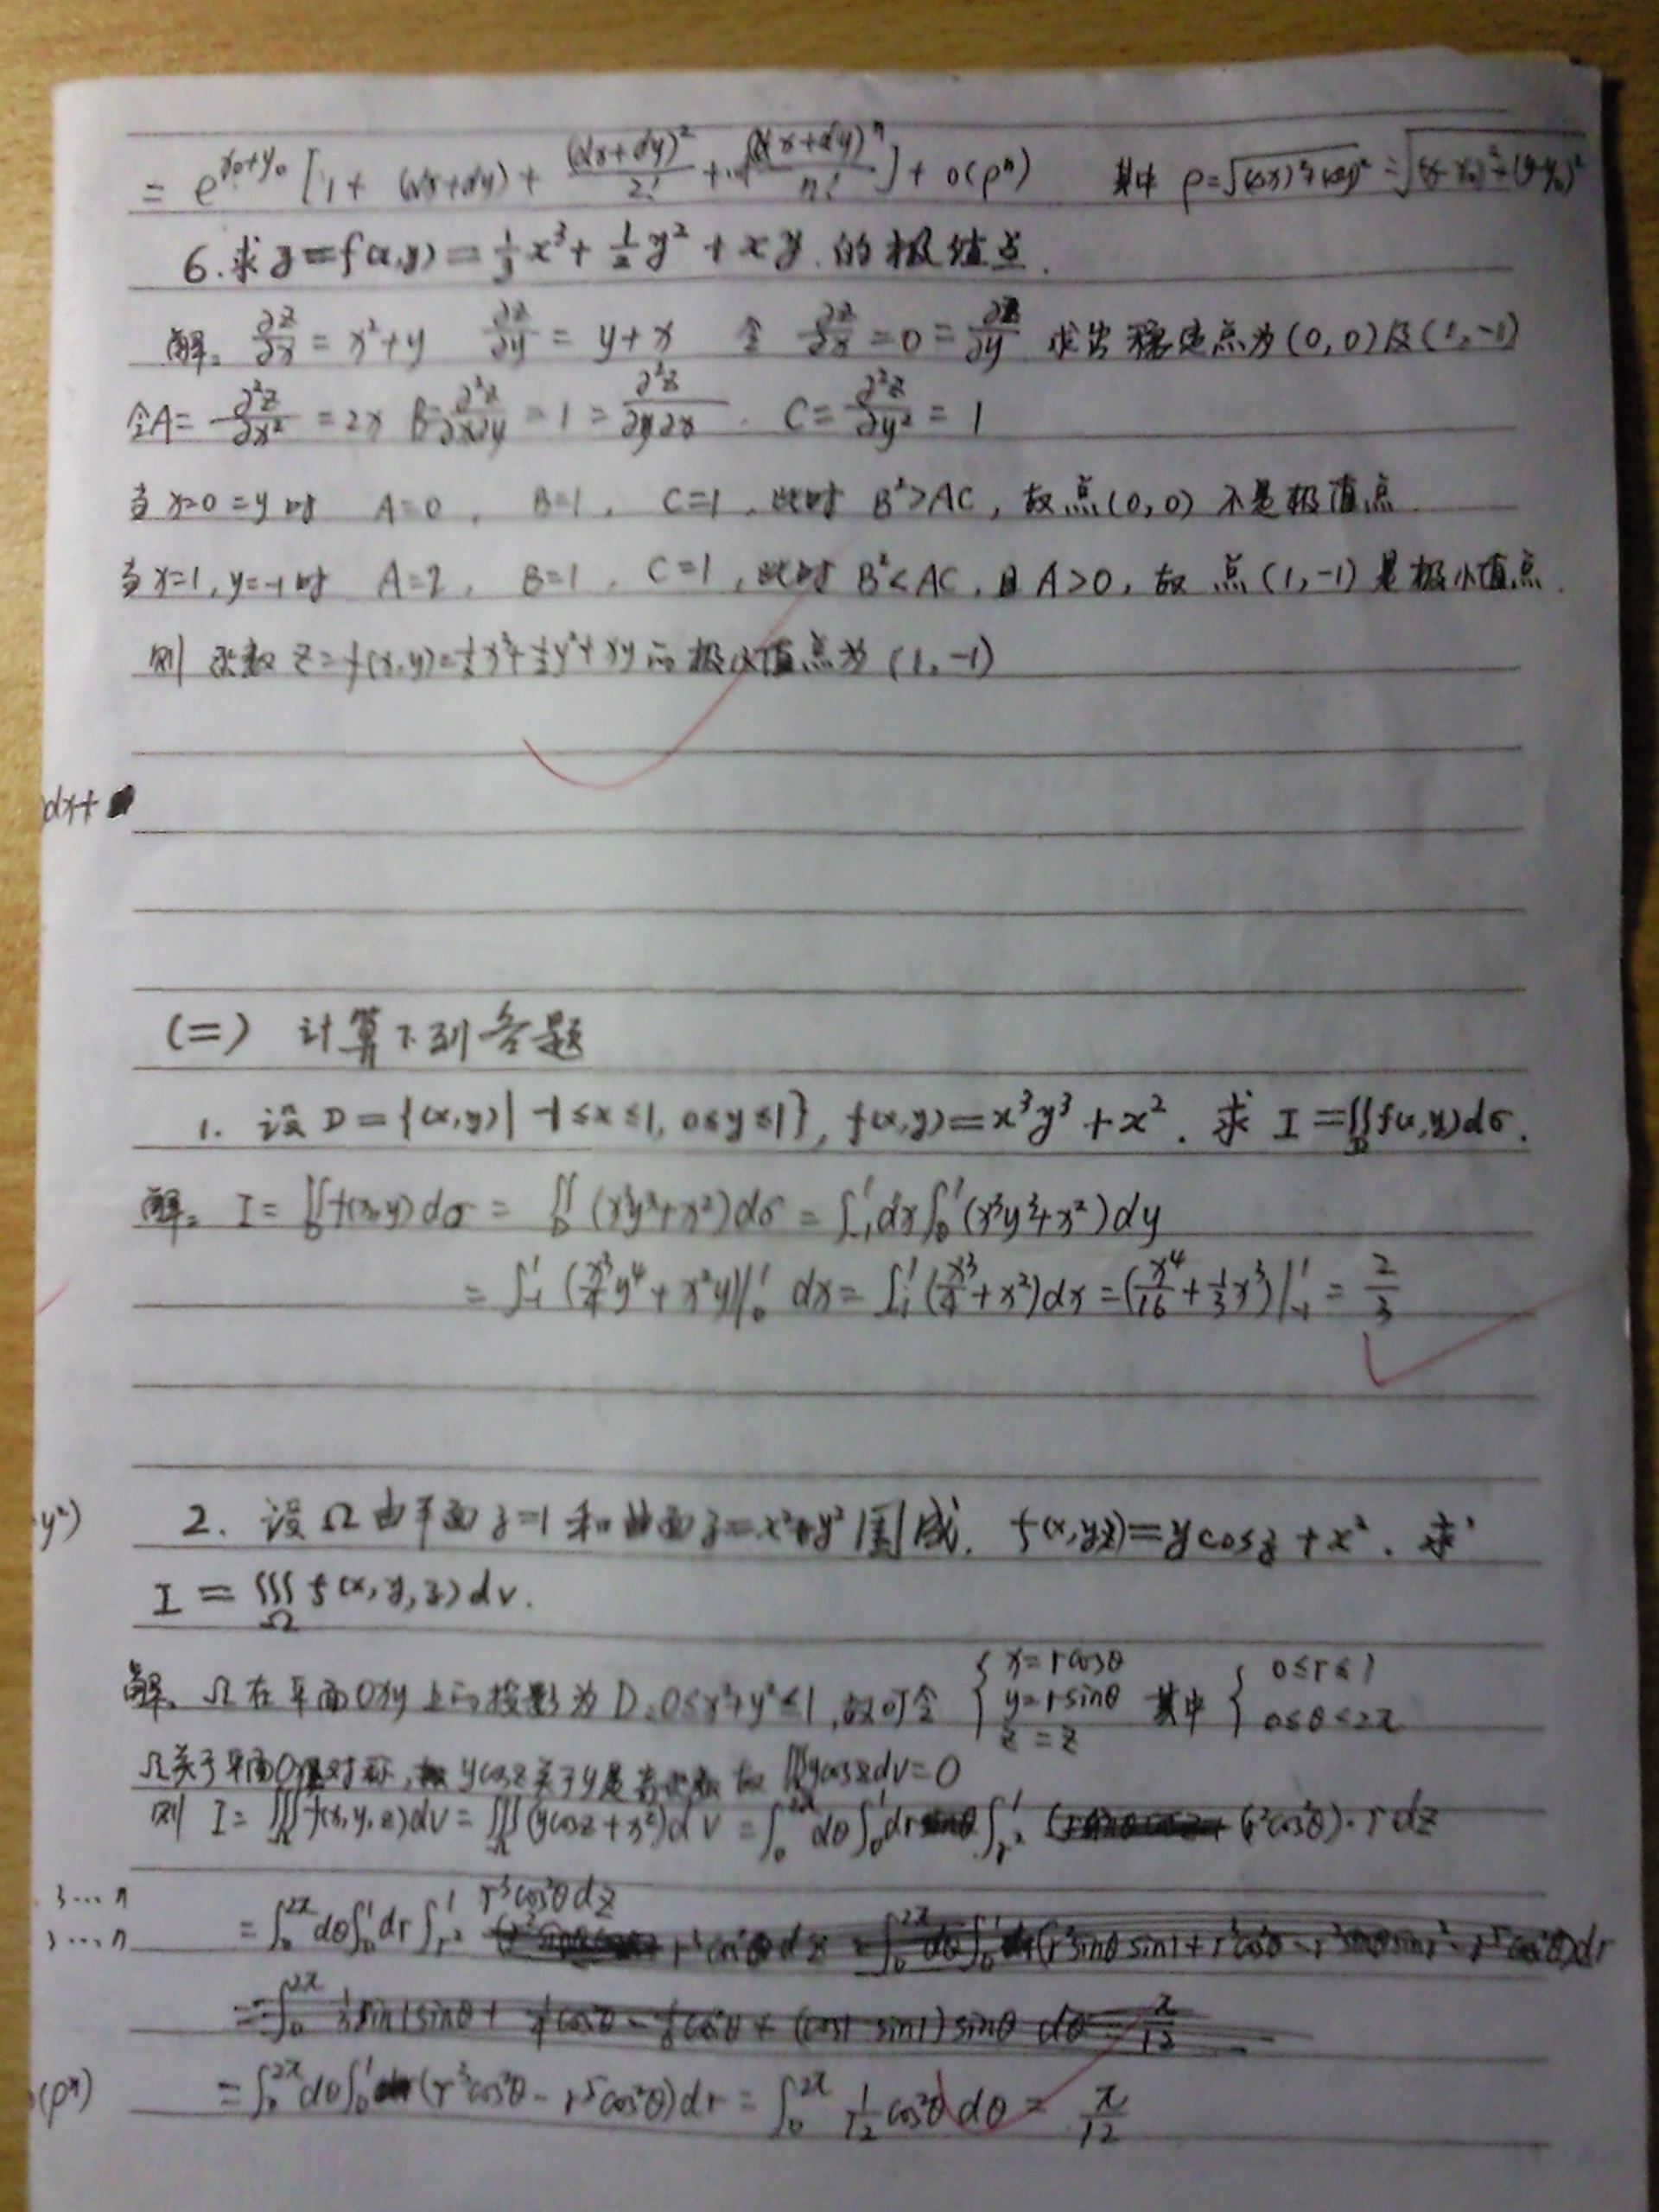 = e^{x₀+y₀} [1 + (dx+dy) + (dx+dy)²/2! + … + (dx+dy)ⁿ/n!] + o(ρⁿ) 其中 ρ=√((Δx)²+(Δy)²) = √((x-x₀)²+(y-y₀)²)
6.求z=f(x,y)=1/3 x³+1/2 y²+xy 的极值点.
解. ∂z/∂x = x²+y ∂z/∂y = y+x 令 ∂z/∂x=0=∂z/∂y 求出稳定点为(0,0)及(1,-1)
令A=∂²z/∂x²=2x B=∂²z/∂x∂y=1=∂²z/∂y∂x . C=∂²z/∂y²=1
当x=0=y时 A=0, B=1, C=1, 此时 B²>AC, 故点(0,0) 不是极值点.
当x=1,y=-1时 A=2, B=1, C=1, 此时 B²<AC,且A>0, 故 点(1,-1)是极小值点.
则 函数 z=f(x,y)=1/3x³+1/2y²+xy的极小值点为(1,-1)
dx+
(二) 计算下列各题
1. 设D={(x,y)| -1≤x≤1, 0≤y≤1}, f(x,y)=x³y³+x². 求 I=∬_D f(x,y)dσ.
解. I=∬_D f(x,y)dσ = ∬_D (x³y³+x²)dσ = ∫₋₁¹dx∫₀¹(x³y³+x²)dy
= ∫₋₁¹ (x³/4 y⁴+x²y)|₀¹ dx = ∫₋₁¹ (x³/4+x²)dx = (x⁴/16+1/3x³)|₋₁¹ = 2/3
y²) 2. 设Ω由平面z=1和曲面z=x²+y²围成. f(x,y,z)=ycosz+x². 求
I=∭_Ω f(x,y,z)dv.
解. Ω在平面Oxy上的投影为D:0≤x²+y²≤1,故可令 {x=rcosθ y=rsinθ z=z 其中 {0≤r≤1 0≤θ≤2π
Ω关于平面对称, ycosz关于y是奇函数 故 ∭ycoszdv=0
则 I=∭_Ω f(x,y,z)dv=∭_Ω(ycosz+x²)dv=∫₀^{2π}dθ∫₀¹dr∫_{r²}^1 (r²cos²θ)·rdz
3…n
=∫₀^{2π}dθ∫₀¹dr∫_{r²}^1 r³cos²θdz
…n
o(ρⁿ) =∫₀^{2π}dθ∫₀¹(r³cos²θ-r⁵cos²θ)dr=∫₀^{2π} 1/12 cos²θdθ=π/12